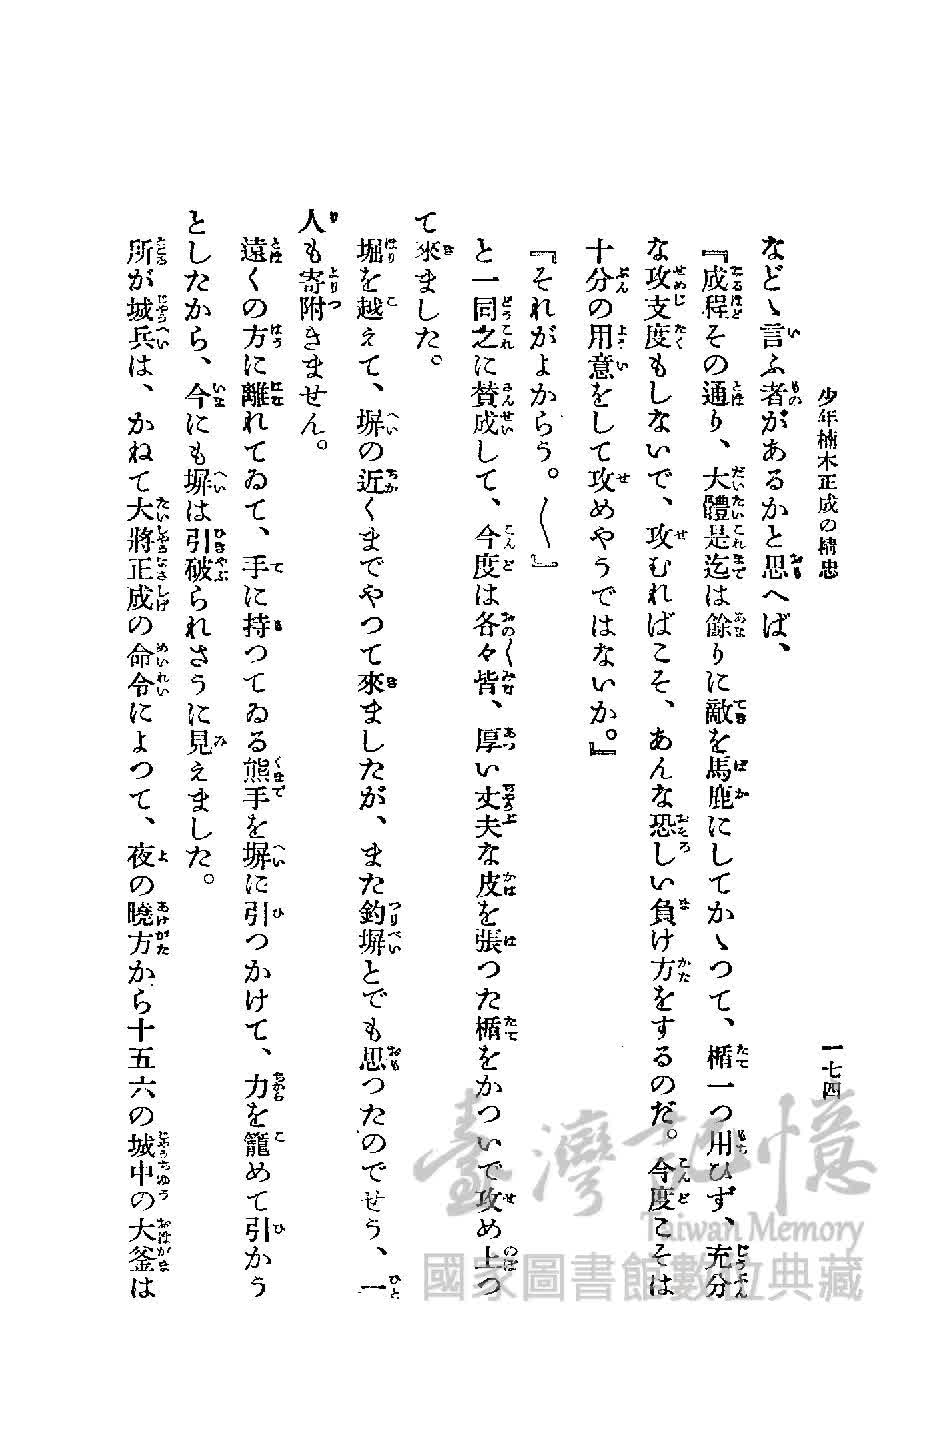 少年楠木正成の精忠
一七四
などゝ言ふ者があるかと思へば、
『成程その通り、大體是迄は餘りに敵を馬鹿にしてかゝつて、楯一つ用ひず、充分
な攻支度もしないで、攻むればこそ、あんな恐しい負け方をするのだ。今度こそは
十分の用意をして攻めやうではないか。』
『それがよからう。〱』
と一同之に賛成して、今度は各々皆、厚い丈夫な皮を張つた楯をかついで攻め上つ
て來ました。
堀を越えて、塀の近くまでやつて來ましたが、また釣塀とでも思つたのでせう、一
人も寄附きません。
遠くの方に離れてゐて、手に持つてゐる熊手を塀に引つかけて、力を籠めて引かう
としたから、今にも塀は引破られさうに見えました。
所が城兵は、かねて大將正成の命令によつて、夜の曉方から十五六の城中の大釜は
臺灣記憶
Taiwan Memory
國家圖書館數位典藏